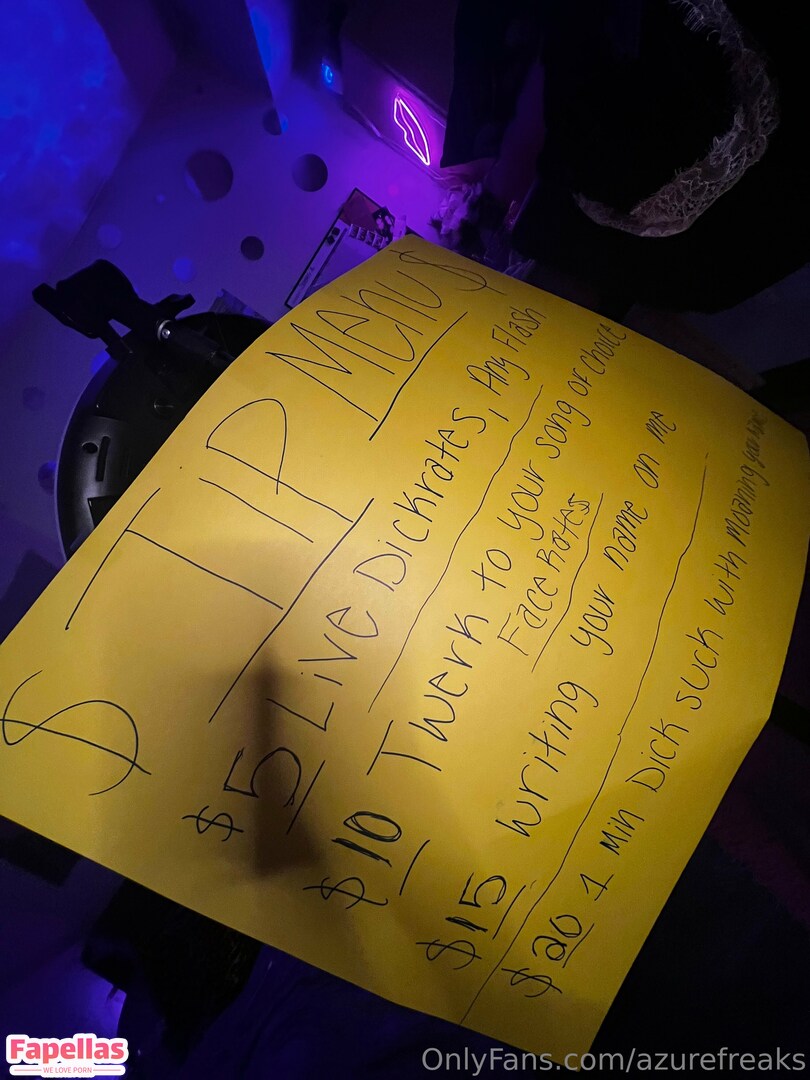 $ TIP MENU $
$5 Live Dickrates, Any Flash
$10 Twerk to your song of choice
Face Rates
$15 Writing your name on me
$20 1 Min Dick suck with moaning your name
Fapellas
WE LOVE PORN
OnlyFans.com/azurefreaks